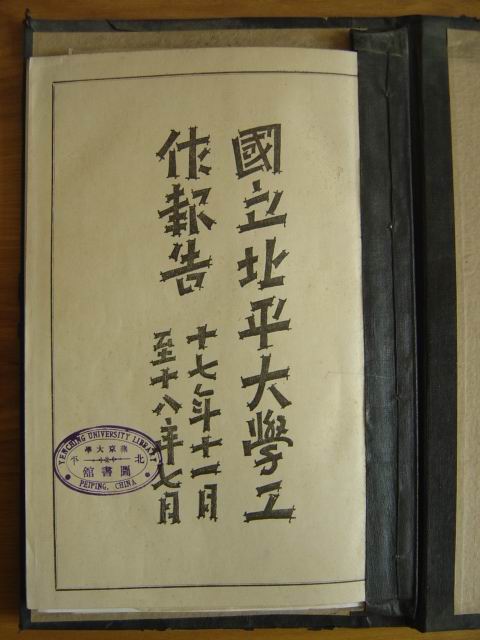 國立北平大學工
作報告
十七年十一月
至十八年七月
YENCHING UNIVERSITY LIBRARY
燕京大學
北平
圖書館
PEIPING, CHINA